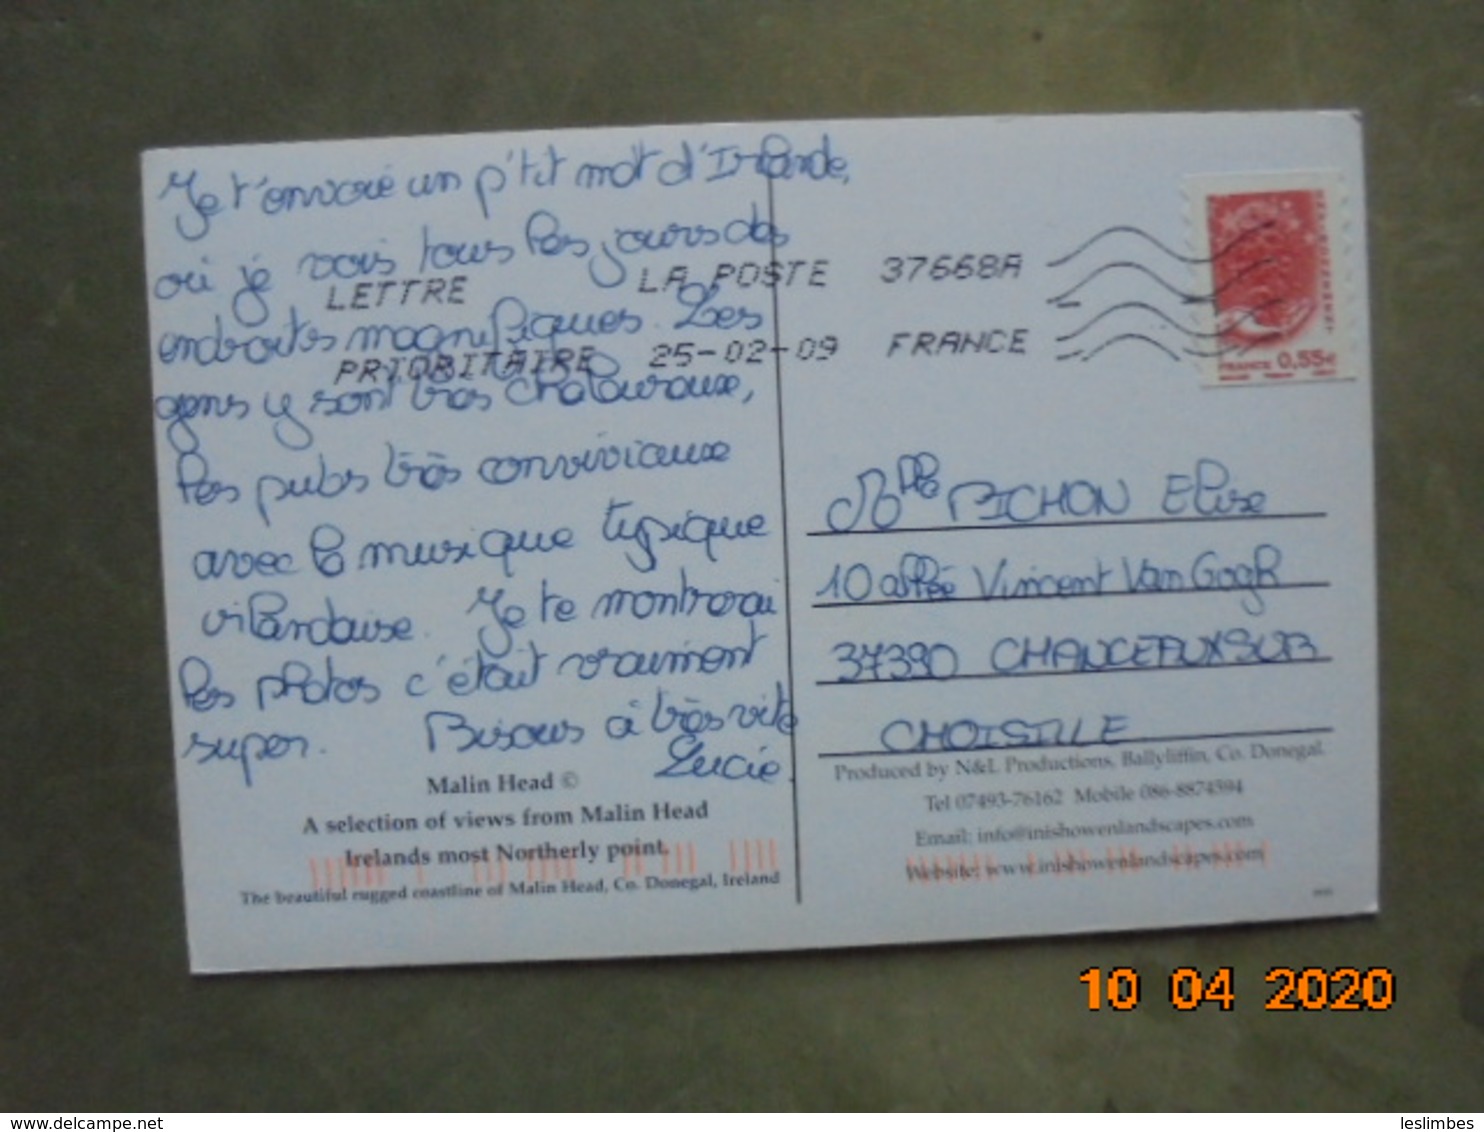 Je t'envoie un p'tit mot d'Irlande,
où je vois tous les jours des
endroits magnifiques. Les
gens y sont très chaleureux,
les pubs très conviviaux
avec la musique typique
irlandaise. Je te montrerai
les photos c'était vraiment
super. Bisous à très vite
Lucie.
LETTRE LA POSTE 37668A
PRIORITAIRE 25-02-09 FRANCE
FRANCE 0,55€
Mlle PICHON Elise
10 allée Vincent Van Gogh
37390 CHANCEAUX SUR
CHOISILLE
Malin Head ©
A selection of views from Malin Head
Irelands most Northerly point.
The beautiful rugged coastline of Malin Head, Co. Donegal, Ireland
Produced by N&L Productions, Ballyliffin, Co. Donegal.
Tel 07493-76162 Mobile 086-8874594
Email: info@inishowenlandscapes.com
Website: www.inishowenlandscapes.com
10 04 2020
leslimbes